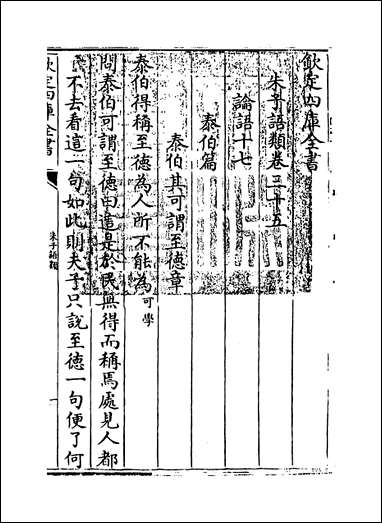 欽定四庫全書
朱子語類卷三十五
論語十七
泰伯篇
泰伯其可謂至德章
泰伯得稱至德為人所不能為可學
問泰伯可謂至德曰這是於民無得而稱焉處見人都
不去看這一句如此則夫子只說至德一句便了何
欽定四庫全書
朱子語類
一